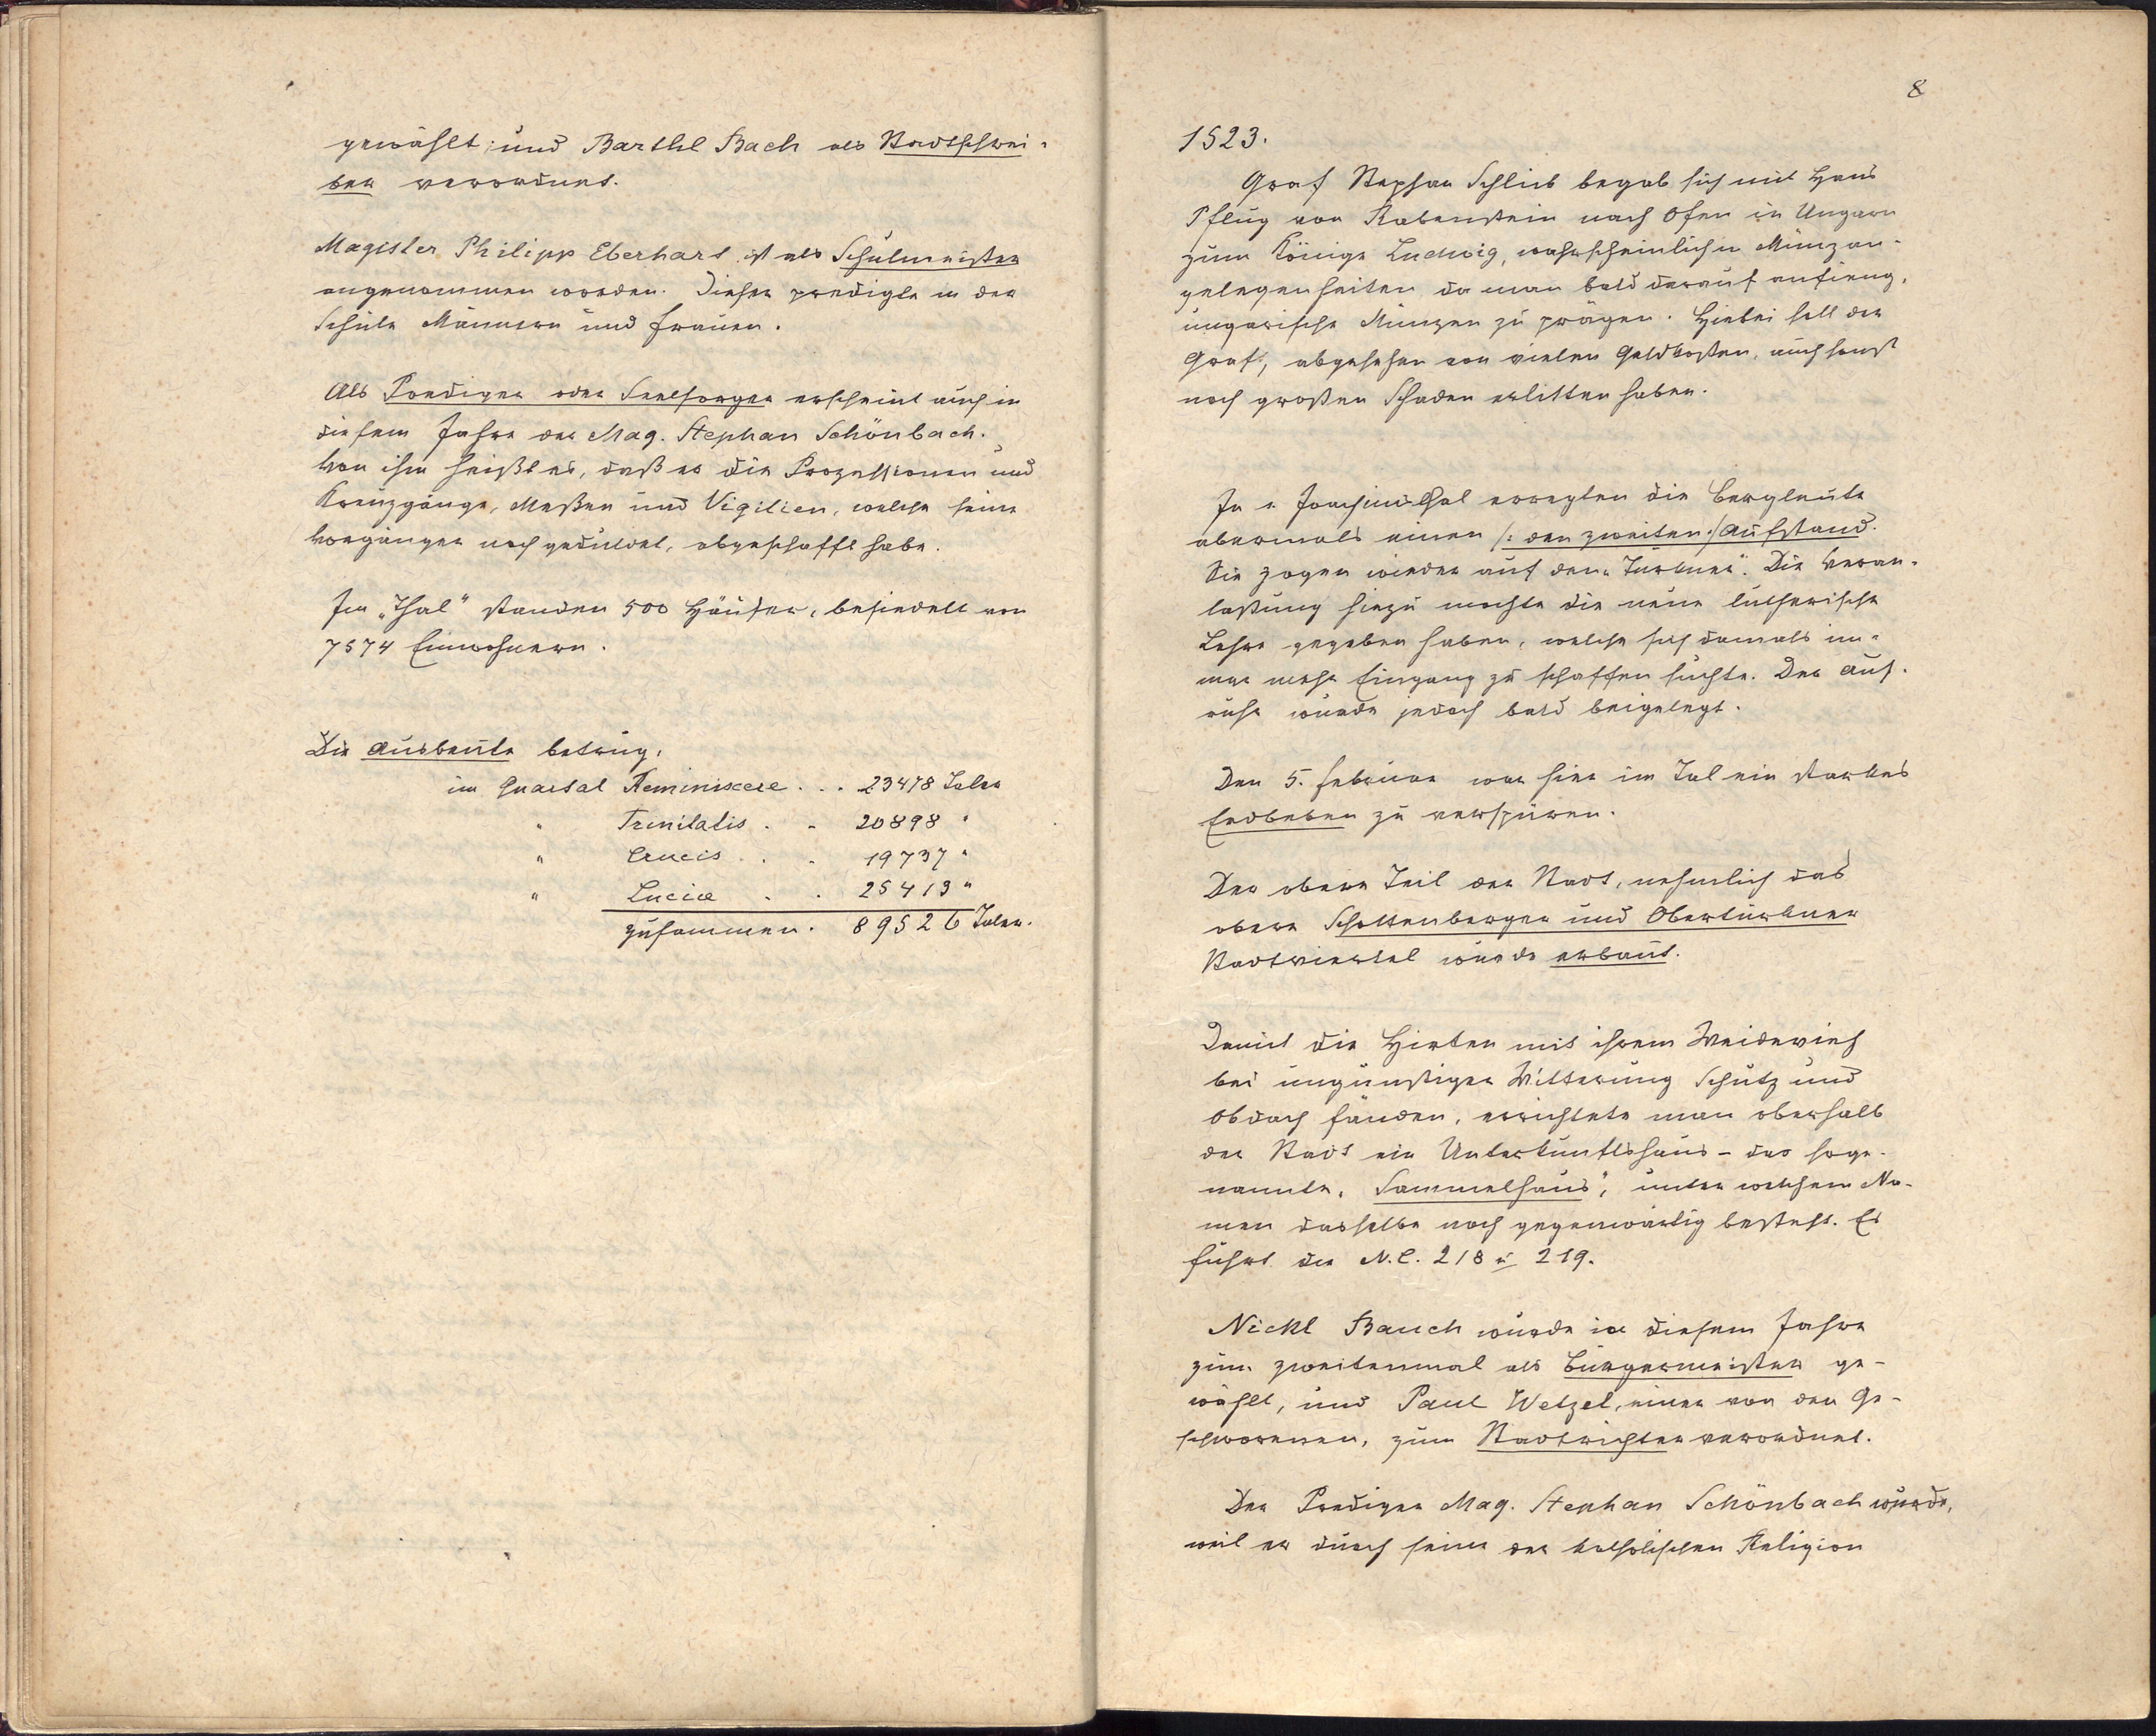 gewählt; und Barthl Bach als Stadtschrei-
ber verordnet.
Magister Philipp Eberhart ist als Schulmeister
angenommen worden. Dieser predigte in der
Schule Männern und Frauen.
Als Prediger oder Seelsorger erscheint auch in
diesem Jahre der Mag. Stephan Schönbach.
Von ihm heißt es, daß er die Prozessionen und
Kreuzgänge, Meßen und Vigilien, welche seine
Vorgänger noch geduldet, abgeschafft habe.
Im „Thal" standen 500 Häuser, besiedelt von
7574 Einwohnern.
Die Ausbeute betrug:
im Quartal Reminiscere . . . 23478 Taler
" Trinitatis . . 20898 "
" Crucis . . . 19737 "
" Luciæ . . 25413 "
zusammen . 89526 Taler.
8
1523.
Graf Stephan Schlick begab sich mit Hans
Pflug von Rabenstein nach Ofen in Ungarn
zum Könige Ludwig, wahrscheinlich in Münzan-
gelegenheiten, da man bald darauf anfieng,
ungarische Münzen zu prägen. Hiebei soll der
Graf, abgesehen von vielen Geldkosten, auch sonst
noch großen Schaden erlitten haben.
In Joachimsthal erregten die Bergleute
abermals einen /: den zweiten :/ Aufstand.
Sie zogen wieder auf den „Türkner". Die Veran-
laßung hiezu mochte die neue lutherische
Lehre gegeben haben, welche sich damals im-
mer mehr Eingang zu schaffen suchte. Der Auf-
ruhr wurde jedoch bald beigelegt.
Den 5. Februar war hier im Tal ein starkes
Erdbeben zu verspüren.
Der obere Teil der Stadt, nehmlich das
obere Schottenberger und Obertürkner
Stadtviertel wurde erbaut.
Damit die Hirten mit ihrem Weidevieh
bei ungünstiger Witterung Schutz und
Obdach fänden, errichtete man oberhalb
der Stadt ein Unterkunftshaus - das soge-
nannte „Sammelhaus", unter welchem Na-
men dasselbe noch gegenwärtig besteht. Es
führt die N.C. 218 u 219.
Nickl Bauch wurde in diesem Jahre
zum zweitenmal als Bürgermeister ge-
wählt, und Paul Wetzel, einer von den Ge-
schworenen, zum Stadtrichter verordnet.
Der Prediger Mag. Stephan Schönbach wurde,
weil er durch seine der katholischen Religion